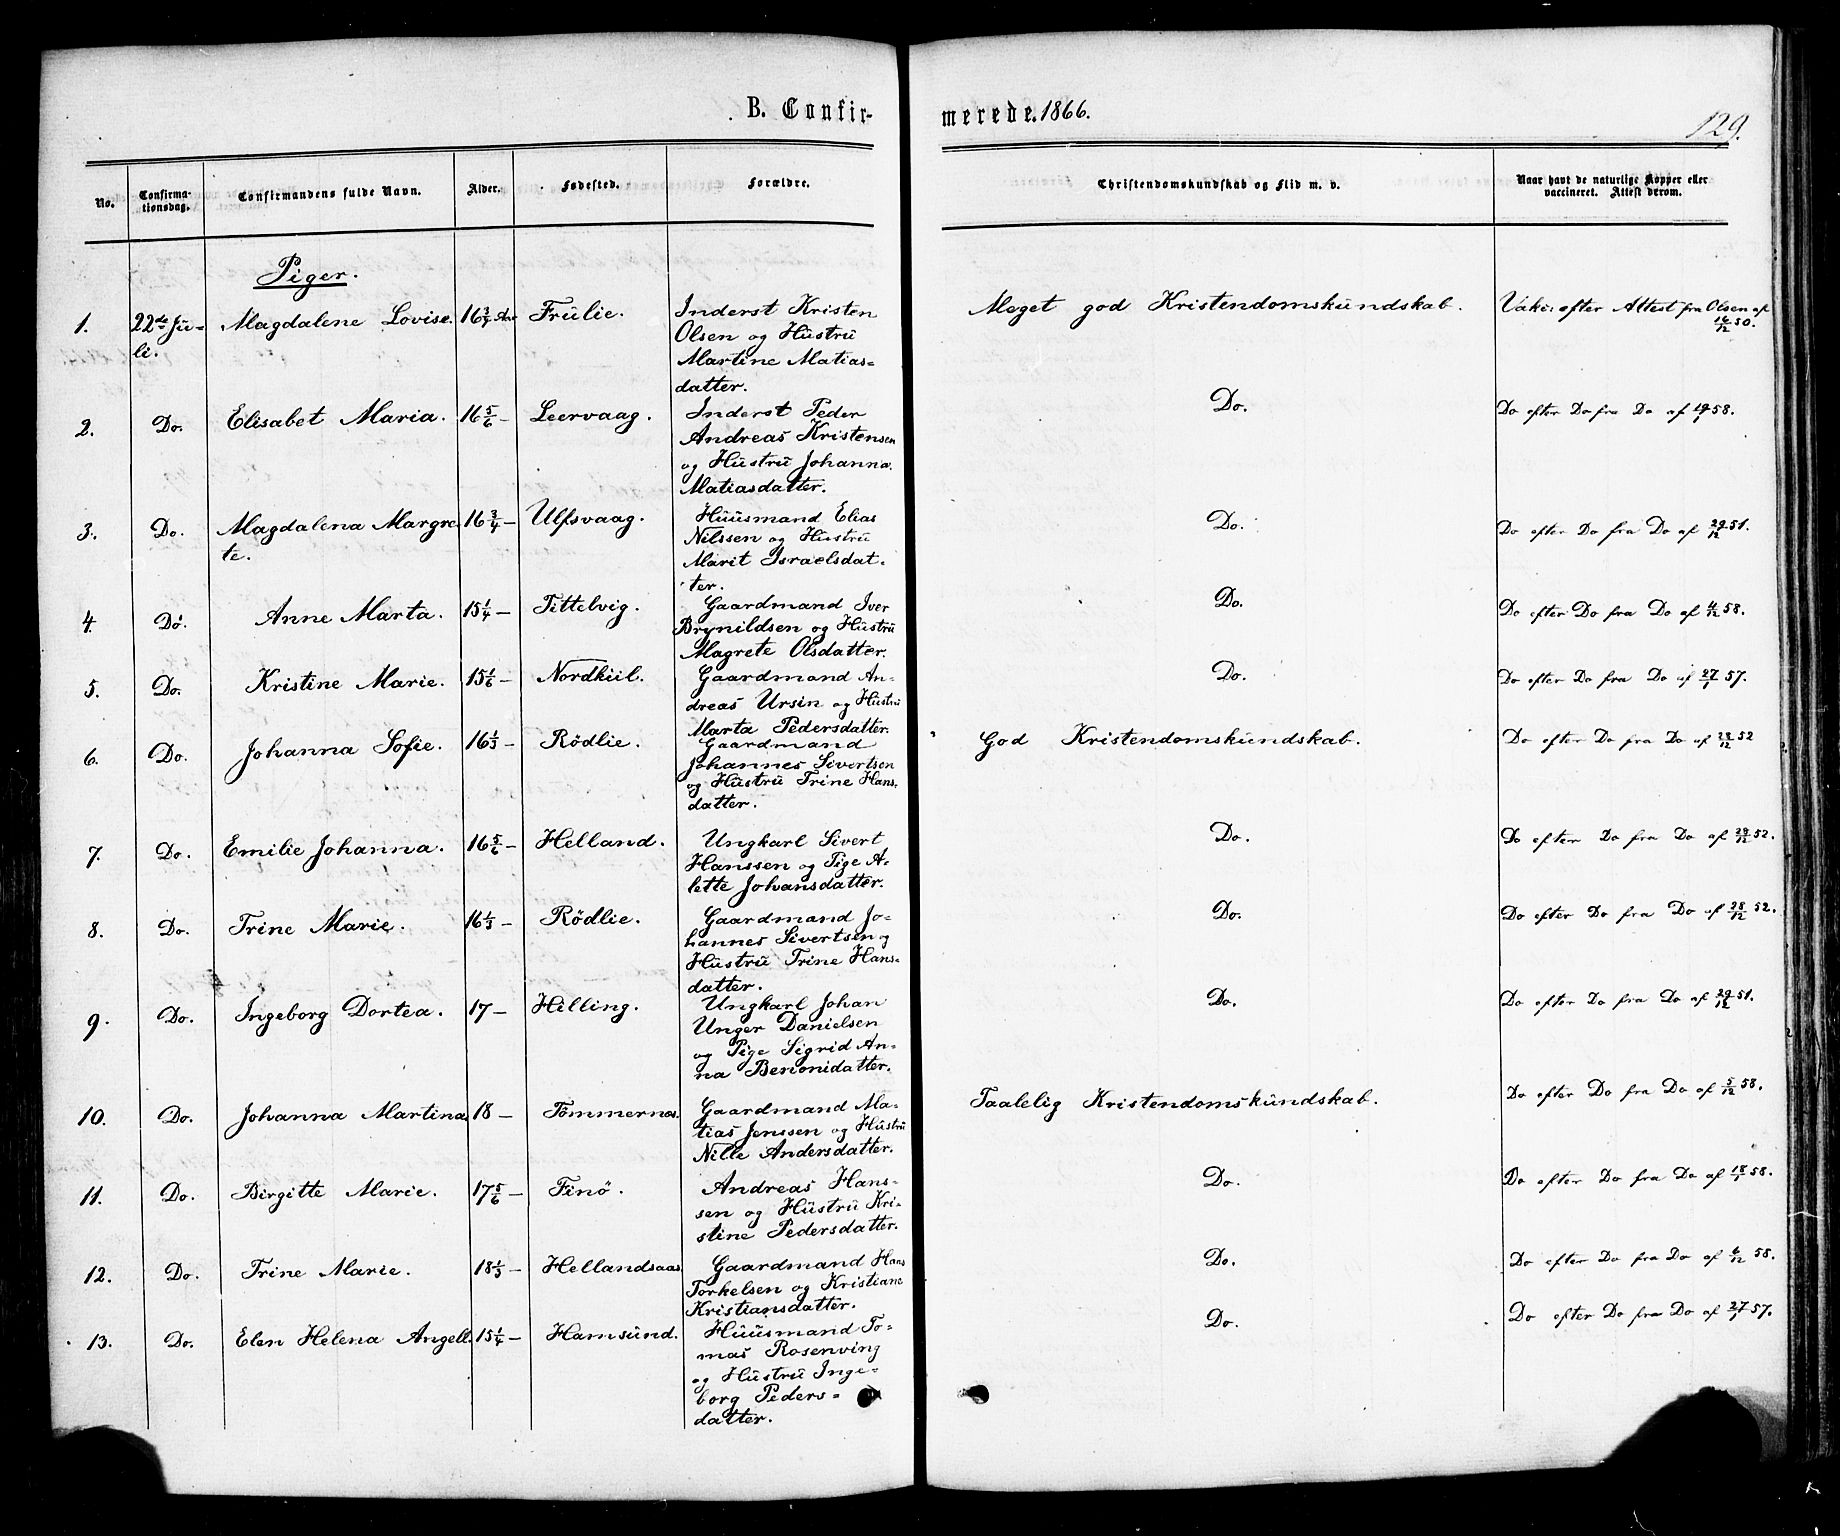 B. Confir-
merede. 1866.
129.
No.
Confirma-
tionsdag.
Confirmandens fulde Navn.
Alder.
Fødested.
Forældre.
Christendomskundskab og Flid m. v.
Naar havt de naturlige Kopper eller
vaccineret. Attest derom.
Piger.
1. 22de Ju- Magdalene Lovise. 16 3/4 Aar Frulie. Inderst Kristen Meget god Kristendomskundskab. Vaks: efter Attest fra Olsen af
li. Olsen og Hustru 16/12 50.
Martine Matias-
datter.
2. Do. Elisabet Maria. 16 5/6 - Leervaag. Inderst Peder Do. Do efter Do fra Do af 58.
Andreas Kristensen
og Hustru Johanna
Matiasdatter.
3. Do. Magdalena Margre- 16 3/4 - Ulfsvaag. Huusmand Elias Do. Do efter Do fra Do af 29/12 51.
te. Nilssen og Hustru
Marit Israelsdat-
ter.
4. Do. Anne Marta. 15 1/4 - Tittelvig. Gaardmand Iver Do. Do efter Do fra Do af 4/12 58.
Brynildsen og Hustru
Magrete Olsdatter.
5. Do. Kristine Marie. 15 1/6 - Nordkiil. Gaardmand An- Do. Do efter Do fra Do af 27/1 57.
dreas Ursin og Hustru
Marta Pedersdatter.
6. Do. Johanna Sofie. 16 1/3 - Rödlie. Gaardmand God Kristendomskundskab. Do efter Do fra Do af 28/12 52
Johannes Sivertsen
og Hustru Trine Hans-
datter.
7. Do. Emilie Johanna. 16 5/6 - Helland. Ungkarl Sivert Do. Do efter Do fra Do af 28/12 52.
Hanssen og Pige A-
lette Johansdatter.
8. Do. Trine Marie. 16 1/3 - Rödlie. Gaardmand Jo- Do. Do efter Do fra Do af 28/12 52.
hannes Sivertsen og
Hustru Trine Hans-
datter.
9. Do. Ingeborg Dortea. 17 - Hilling. Ungkarl Johan Do. Do efter Do fra Do af 29/12 51.
Unger Danielsen
og Pige Sigrid An-
na Benonidatter.
10. Do. Johanna Martina 18 - Tömmernes. Gaardmand Ma- Taalelig Kristendomskundskab. Do efter Do fra Do af 5/12 58.
tias Jenssen og Hustru
Nille Andersdatter.
11. Do. Birgitte Marie. 17 5/6 - Finö. Andreas Hans- Do. Do efter Do fra Do af 18/1 58.
sen og Hustru Kri-
stine Pedersdatter.
12. Do. Trine Marie. 18 1/3 - Hellandsaas. Gaardmand Hans Do. Do efter Do fra Do af 6/12 58.
Torkelsen og Kristiane
Kristiansdatter.
13. Do. Elen Helena Angell. 15 1/4 - Hamsund. Huusmand To- Do. Do efter Do fra Do af 27/1 57.
mas Rosenving
og Hustru Inge-
borg Peders-
datter.